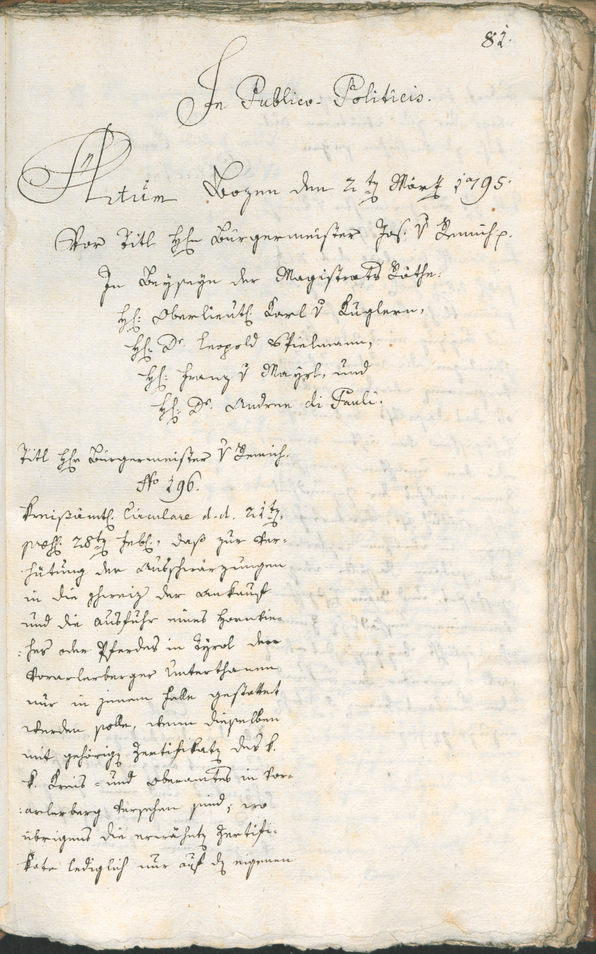 81.
In Publico-Politicis.
Actum Bozen den 2tn März 1795.
Vor Titl Hhn Bürgermeister Jos. v Remich p.
In Beyseyn der Magistrats Räthe.
Hh: Oberlieuth. Karl v Küglern,
Hh: Dr. Leopold Spielmann,
Hh: Franz v Mayrl, und
Hh: Dr. Andree di Pauli.
Titl Hhr Bürgermeister v Remich.
No 196.
Kreisämtl. Circulare d. d. 21tn,
28tn Febl:, daß zur Ver=
hütung der Abschwärzungen
in die Schweiz der Ankauf
und die Ausfuhr eines Hornvie=
:hes oder Pferdes in Tyrol den
Vorarlberger Unterthanen
nur in jenem Falle gestattet
werden solle, wenn dieselben
mit gehörign Zertifikatn des k.
k. Kreis- und Oberamtes in Vor=
:arlberg versehen sind; wo
übrigens die erwähntn Zertifi=
kate lediglich nur auf dn eigenen